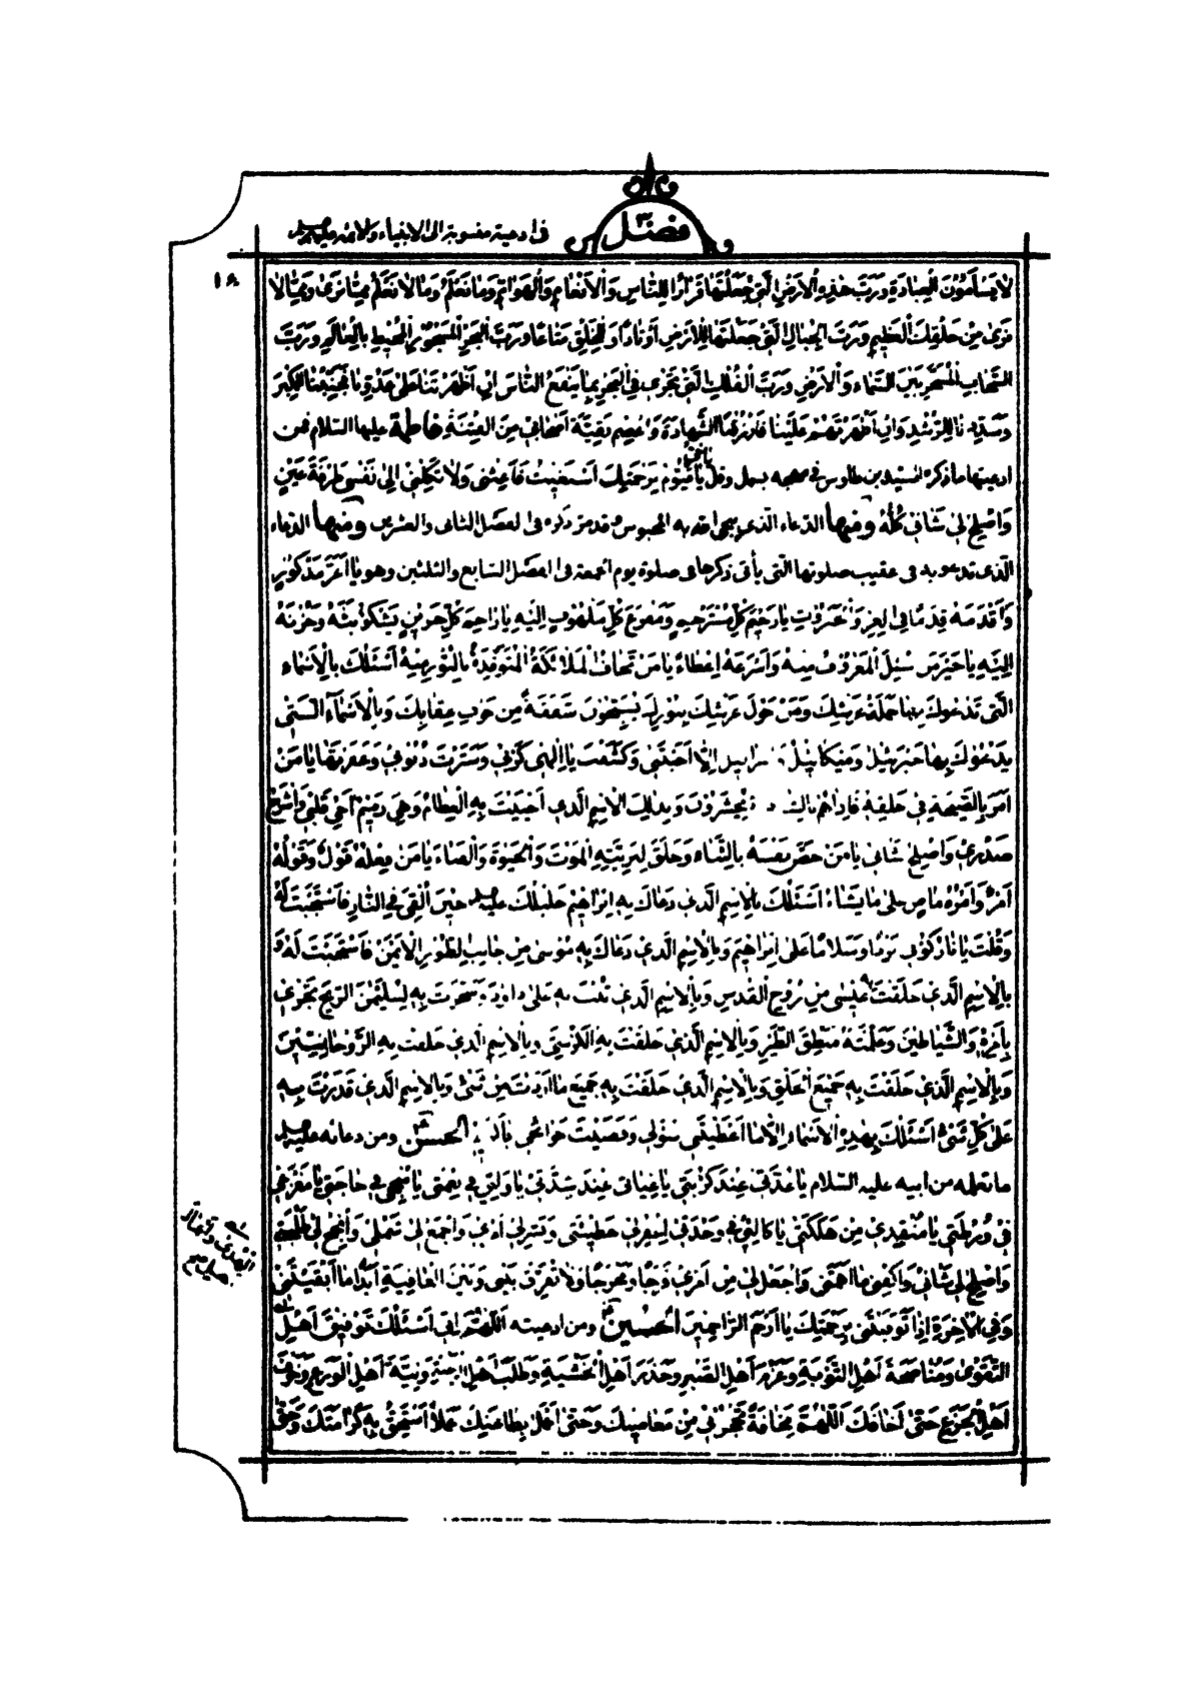 فصل
فى ادعية منسوبة الى الانبياء والائمه عليهم
لَا يَسْأَمُونَ الْعِبَادَةِ وَرَبَّ هٰذِهِ الْأَرْضِ الَّتِي جَعَلْتَهَا قَرَارًا لِلنَّاسِ وَالْأَنْعَامِ وَالْهَوَامِّ وَمَا نَعْلَمُ وَمَا لَا نَعْلَمُ مِمَّا نَرَىٰ وَمِمَّا لَا
نَرَىٰ مِنْ خَلْقِكَ الْعَظِيمِ وَرَبَّ الْجِبَالِ الَّتِي جَعَلْتَهَا لِلْأَرْضِ أَوْتَادًا وَلِلْخَلْقِ مَتَاعًا وَرَبَّ الْبَحْرِ الْمَسْجُورِ الْمُحِيطِ بِالْعَالَمِ وَرَبَّ
السَّحَابِ الْمُسَخَّرِ بَيْنَ السَّمَاءِ وَالْأَرْضِ وَرَبَّ الْفُلْكِ الَّتِي تَجْرِي فِي الْبَحْرِ بِمَا يَنْفَعُ النَّاسَ اِنْ اَظْهَرْتَنَا عَلَىٰ عَدُوِّنَا فَجَنِّبْنَا الْكِبْرَ
وَسَدِّدْنَا لِلرُّشْدِ وَاِنْ اَظْهَرْتَهُمْ عَلَيْنَا فَارْزُقْنَا الشَّهَادَةَ وَاعْصِمْ بَقِيَّةَ اَصْحَابِي مِنَ الْفِتْنَةِ فاطمة عليها السلام فمن
ادعيتها ما ذكره السيد بن طاوس فى مهجه بسمل وقل يَا حَيُّ يَا قَيُّومُ بِرَحْمَتِكَ اَسْتَغِيثُ فَاَغِثْنِي وَلَا تَكِلْنِي اِلَى نَفْسِي طَرْفَةَ عَيْنٍ
وَاَصْلِحْ لِي شَأْنِي كُلَّهُ ومنها الدعاء الذى المحبوس ذكره فى الفصل الثانى والعشرين ومنها الدعاء
الذى تدعو به فى عقيب صلوتها التى يأتى ذكرها فى صلوة يوم الجمعة فى الفصل السابع والثلثين وهو يَا اَعَزَّ مَذْكُورٍ
وَاَقْدَمَهُ قِدَمًا فِي الْعِزِّ وَالْجَبَرُوتِ يَا رَحِيمَ كُلِّ مُسْتَرْحِمٍ وَمَفْزَعَ كُلِّ مَلْهُوفٍ اِلَيْهِ يَا رَاحِمَ كُلِّ حَزِينٍ يَشْكُو بَثَّهُ وَحُزْنَهُ
اِلَيْهِ يَا خَيْرَ مَنْ سُئِلَ الْمَعْرُوفُ مِنْهُ وَاَسْرَعَهُ اِعْطَاءً يَا مَنْ تَخَافُ الْمَلَائِكَةُ الْمُتَوَقِّدَةُ بِالنُّورِ مِنْهُ اَسْئَلُكَ بِالْاَسْمَاءِ
الَّتِي تَدْعُوكَ بِهَا حَمَلَةُ عَرْشِكَ وَمَنْ حَوْلَ عَرْشِكَ بِنُورِكَ يُسَبِّحُونَ شَفَقَةً مِنْ خَوْفِ عِقَابِكَ وَبِالْاَسْمَاءِ الَّتِي
يَدْعُوكَ بِهَا جَبْرَئِيلُ وَمِيكَائِيلُ اِلَّا اَجَبْتَنِي وَكَشَفْتَ يَا اِلٰهِي كُرْبَتِي وَسَتَرْتَ ذُنُوبِي وَغَفَرْتَهَا يَا مَنْ
اَمَرَ بِالصَّيْحَةِ فِي خَلْقِهِ فَاِذَا هُمْ يُحْشَرُونَ وَبِذٰلِكَ الْاِسْمِ الَّذِي اَحْيَيْتَ بِهِ الْعِظَامَ وَهِيَ رَمِيمٌ اَحْيِ قَلْبِي وَاشْرَحْ
صَدْرِي وَاَصْلِحْ شَأْنِي يَا مَنْ خَصَّ نَفْسَهُ بِالْبَقَاءِ وَخَلَقَ لِبَرِيَّتِهِ الْمَوْتَ وَالْحَيٰوةَ وَالْفَنَاءَ يَا مَنْ فِعْلُهُ قَوْلٌ وَقَوْلُهُ
اَمْرٌ وَاَمْرُهُ مَاضٍ عَلَىٰ مَا يَشَاءُ اَسْئَلُكَ بِالْاِسْمِ الَّذِي دَعَاكَ بِهِ اِبْرَاهِيمُ خَلِيلُكَ حِينَ اُلْقِيَ فِي النَّارِ فَاسْتَجَبْتَ لَهُ
وَقُلْتَ يَا نَارُ كُونِي بَرْدًا وَسَلَامًا عَلَىٰ اِبْرَاهِيمَ وَبِالْاِسْمِ الَّذِي دَعَاكَ بِهِ مُوسَىٰ مِنْ جَانِبِ الطُّورِ الْاَيْمَنِ فَاسْتَجَبْتَ لَهُ وَ
بِالْاِسْمِ الَّذِي خَلَقْتَ بِهِ عِيسَىٰ مِنْ رُوحِ الْقُدُسِ وَبِالْاِسْمِ الَّذِي تُبْتَ بِهِ عَلَىٰ دَاوُدَ وَسَخَّرْتَ بِهِ لِسُلَيْمٰنَ الرِّيحَ تَجْرِي
بِاَمْرِهِ وَالشَّيَاطِينَ وَعَلَّمْتَهُ مَنْطِقَ الطَّيْرِ وَبِالْاِسْمِ الَّذِي خَلَقْتَ بِهِ الْكُرْسِيَّ وَبِالْاِسْمِ الَّذِي خَلَقْتَ بِهِ الرُّوحَانِيِّينَ
وَبِالْاِسْمِ الَّذِي خَلَقْتَ بِهِ جَمِيعَ الْخَلْقِ وَبِالْاِسْمِ الَّذِي خَلَقْتَ بِهِ جَمِيعَ مَا اَرَدْتَ مِنْ شَيْءٍ وَبِالْاِسْمِ الَّذِي قَدَرْتَ بِهِ
عَلَىٰ كُلِّ شَيْءٍ اَسْئَلُكَ بِهٰذِهِ الْاَسْمَاءِ اِلَّا مَا اَعْطَيْتَنِي سُؤْلِي وَقَضَيْتَ حَوَائِجِي الحسن ومن دعائه
ما تعلمه من ابيه عليه السلام يَا عُدَّتِي عِنْدَ كُرْبَتِي يَا غِيَاثِي عِنْدَ شِدَّتِي يَا وَلِيِّي فِي نِعْمَتِي يَا مُنْجِحِي فِي حَاجَتِي يَا مَفْزَعِي
فِي وَرْطَتِي يَا مُنْقِذِي مِنْ هَلَكَتِي يَا كَالِئِي فِي وَحْدَتِي اِغْفِرْ لِي خَطِيئَتِي وَيَسِّرْ لِي اَمْرِي وَاجْمَعْ لِي شَمْلِي وَاَنْجِحْ لِي طَلِبَتِي
وَاَصْلِحْ لِي شَأْنِي وَاكْفِنِي مَا اَهَمَّنِي وَاجْعَلْ لِي مِنْ اَمْرِي فَرَجًا وَمَخْرَجًا وَلَا تُفَرِّقْ بَيْنِي وَبَيْنَ الْعَافِيَةِ اَبَدًا مَا اَبْقَيْتَنِي
وَفِي الْاٰخِرَةِ اِذَا تَوَفَّيْتَنِي بِرَحْمَتِكَ يَا اَرْحَمَ الرَّاحِمِينَ الحسين ومن ادعيته اَللّٰهُمَّ اِنِّي اَسْئَلُكَ تَوْفِيقَ اَهْلِ
التَّقْوَىٰ وَمُنَاصَحَةَ اَهْلِ التَّوْبَةِ وَعَزْمَ اَهْلِ الصَّبْرِ وَحَذَرَ اَهْلِ الْخَشْيَةِ وَطَلَبَ اَهْلِ الرَّغْبَةِ وَنِيَّةَ اَهْلِ الْوَرَعِ وَخَوْفَ
اَهْلِ الْجَزَعِ حَتَّىٰ اَخَافَكَ اَللّٰهُمَّ مَخَافَةً تَحْجُزُنِي عَنْ مَعَاصِيكَ وَحَتَّىٰ اَعْمَلَ بِطَاعَتِكَ عَمَلًا اَسْتَحِقُّ بِهِ كَرَامَتَكَ وَحَتَّىٰ